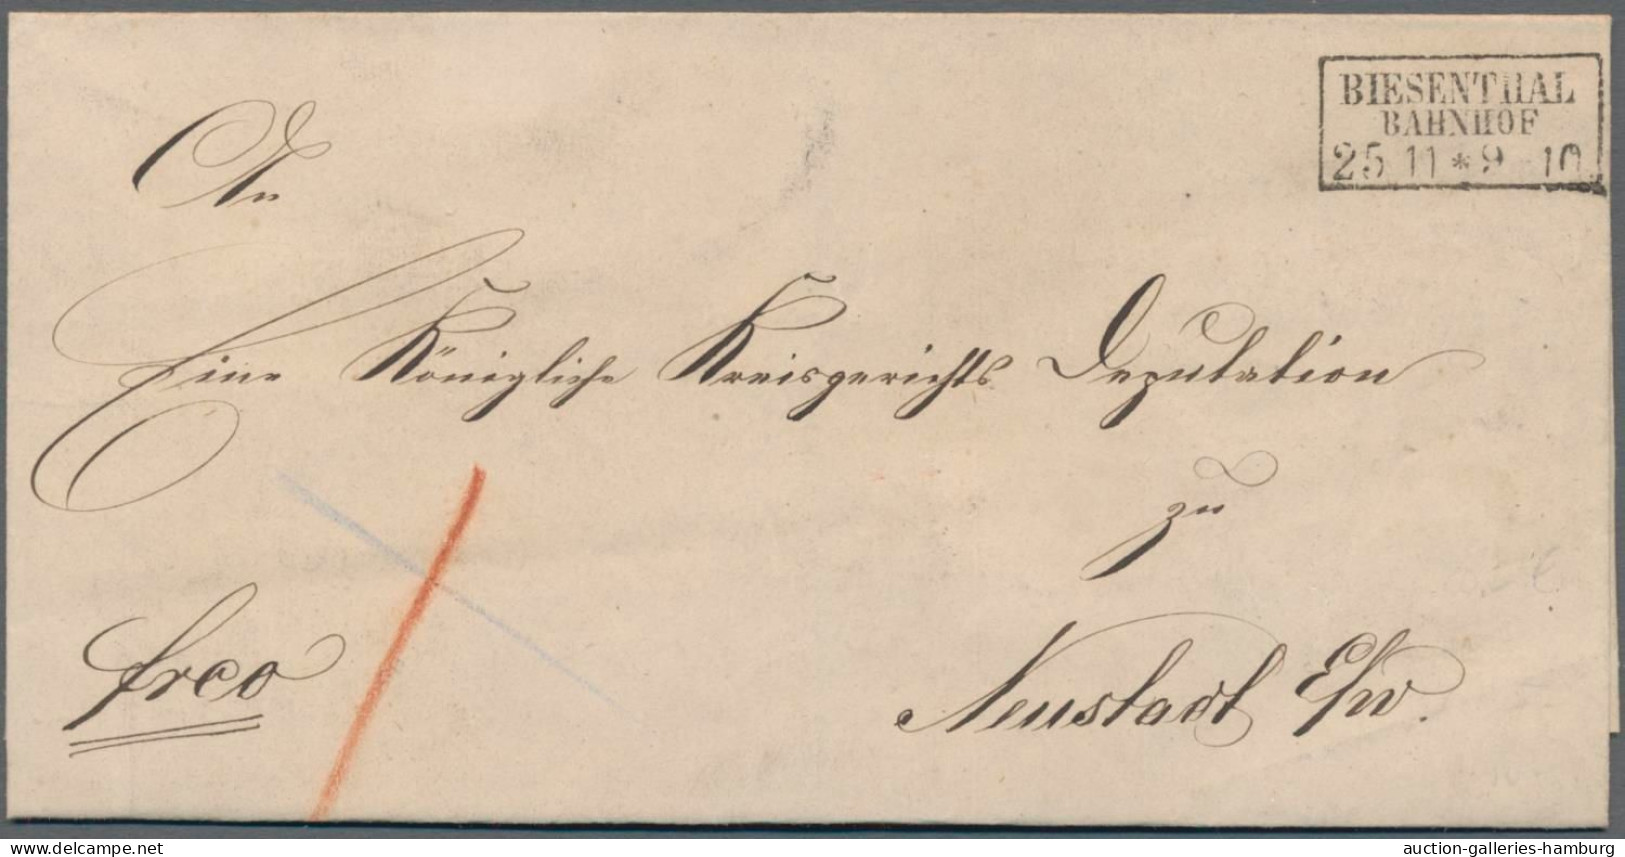 BIESENTHAL
BAHNHOF
25 11 * 9 10
An
Eine Königliche Kreisgerichts Deputation
zu
frco
Neustadt E/w.
www.delcampe.net
auction-galleries-hamburg